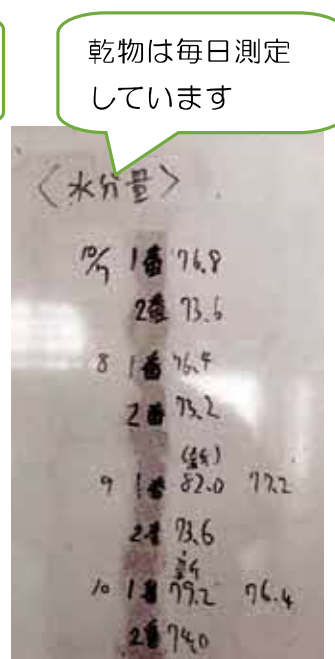 乾物は毎日測定
しています
〈水分量〉
10/7 1番 76.8
2番 73.6
8 1番 76.4
2番 73.2
(新)
9 1番 82.0 77.2
2番 73.6
新
10 1番 79.2 76.4
2番 74.0